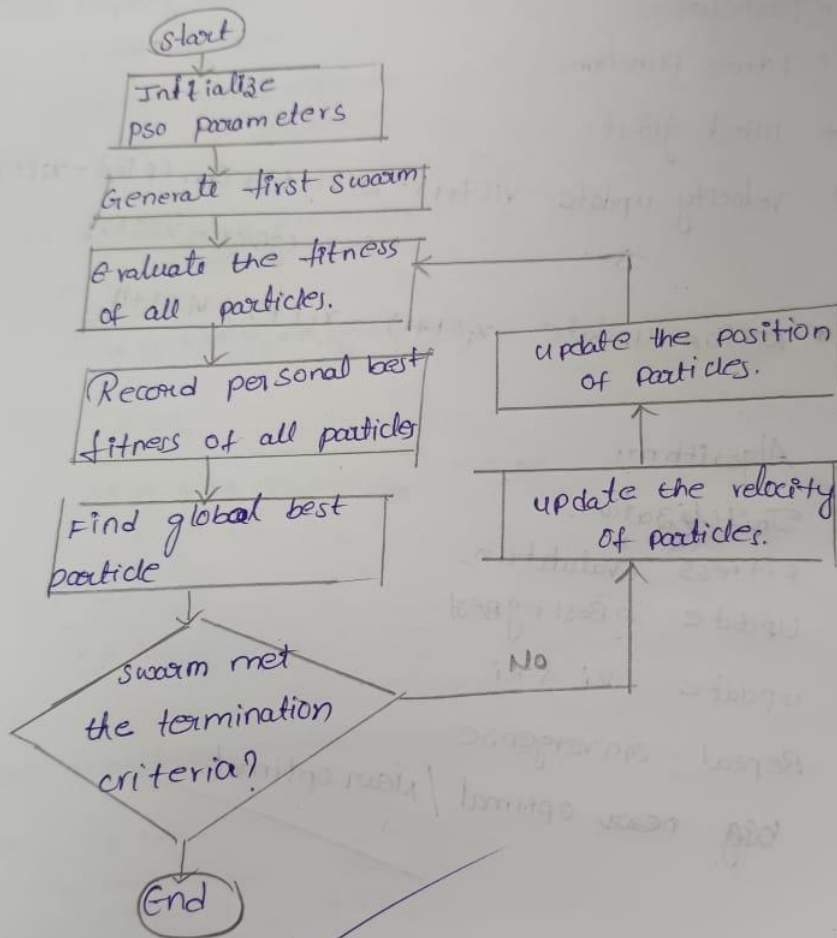 Start
Initialize
PSO parameters
Generate first swarm
Evaluate the fitness
of all particles.
Record personal best
fitness of all particles
Find global best
particle
swarm met
the termination
criteria?
No
update the velocity
of particles.
update the position
of particles.
End